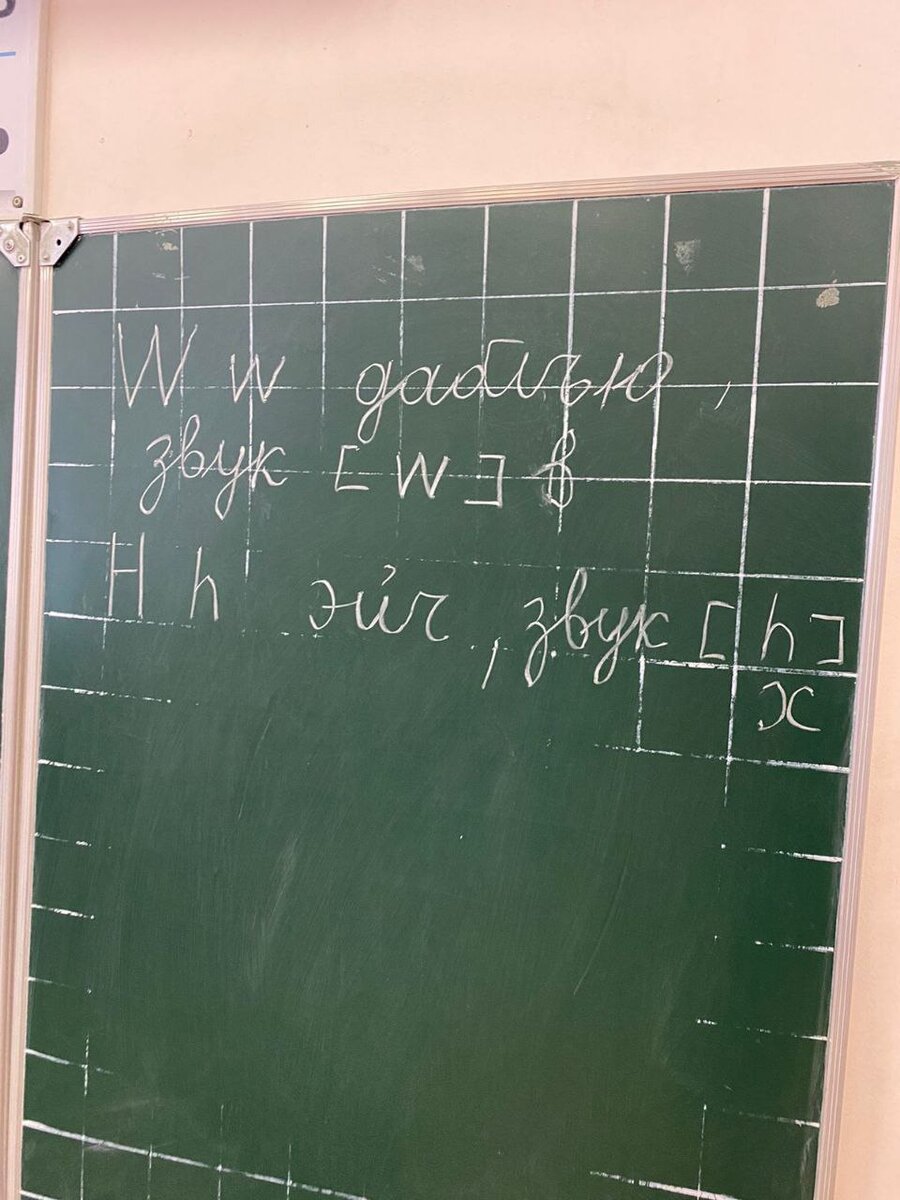 W w даблъю,
звук [w] в
H h эйч, звук [h]
х